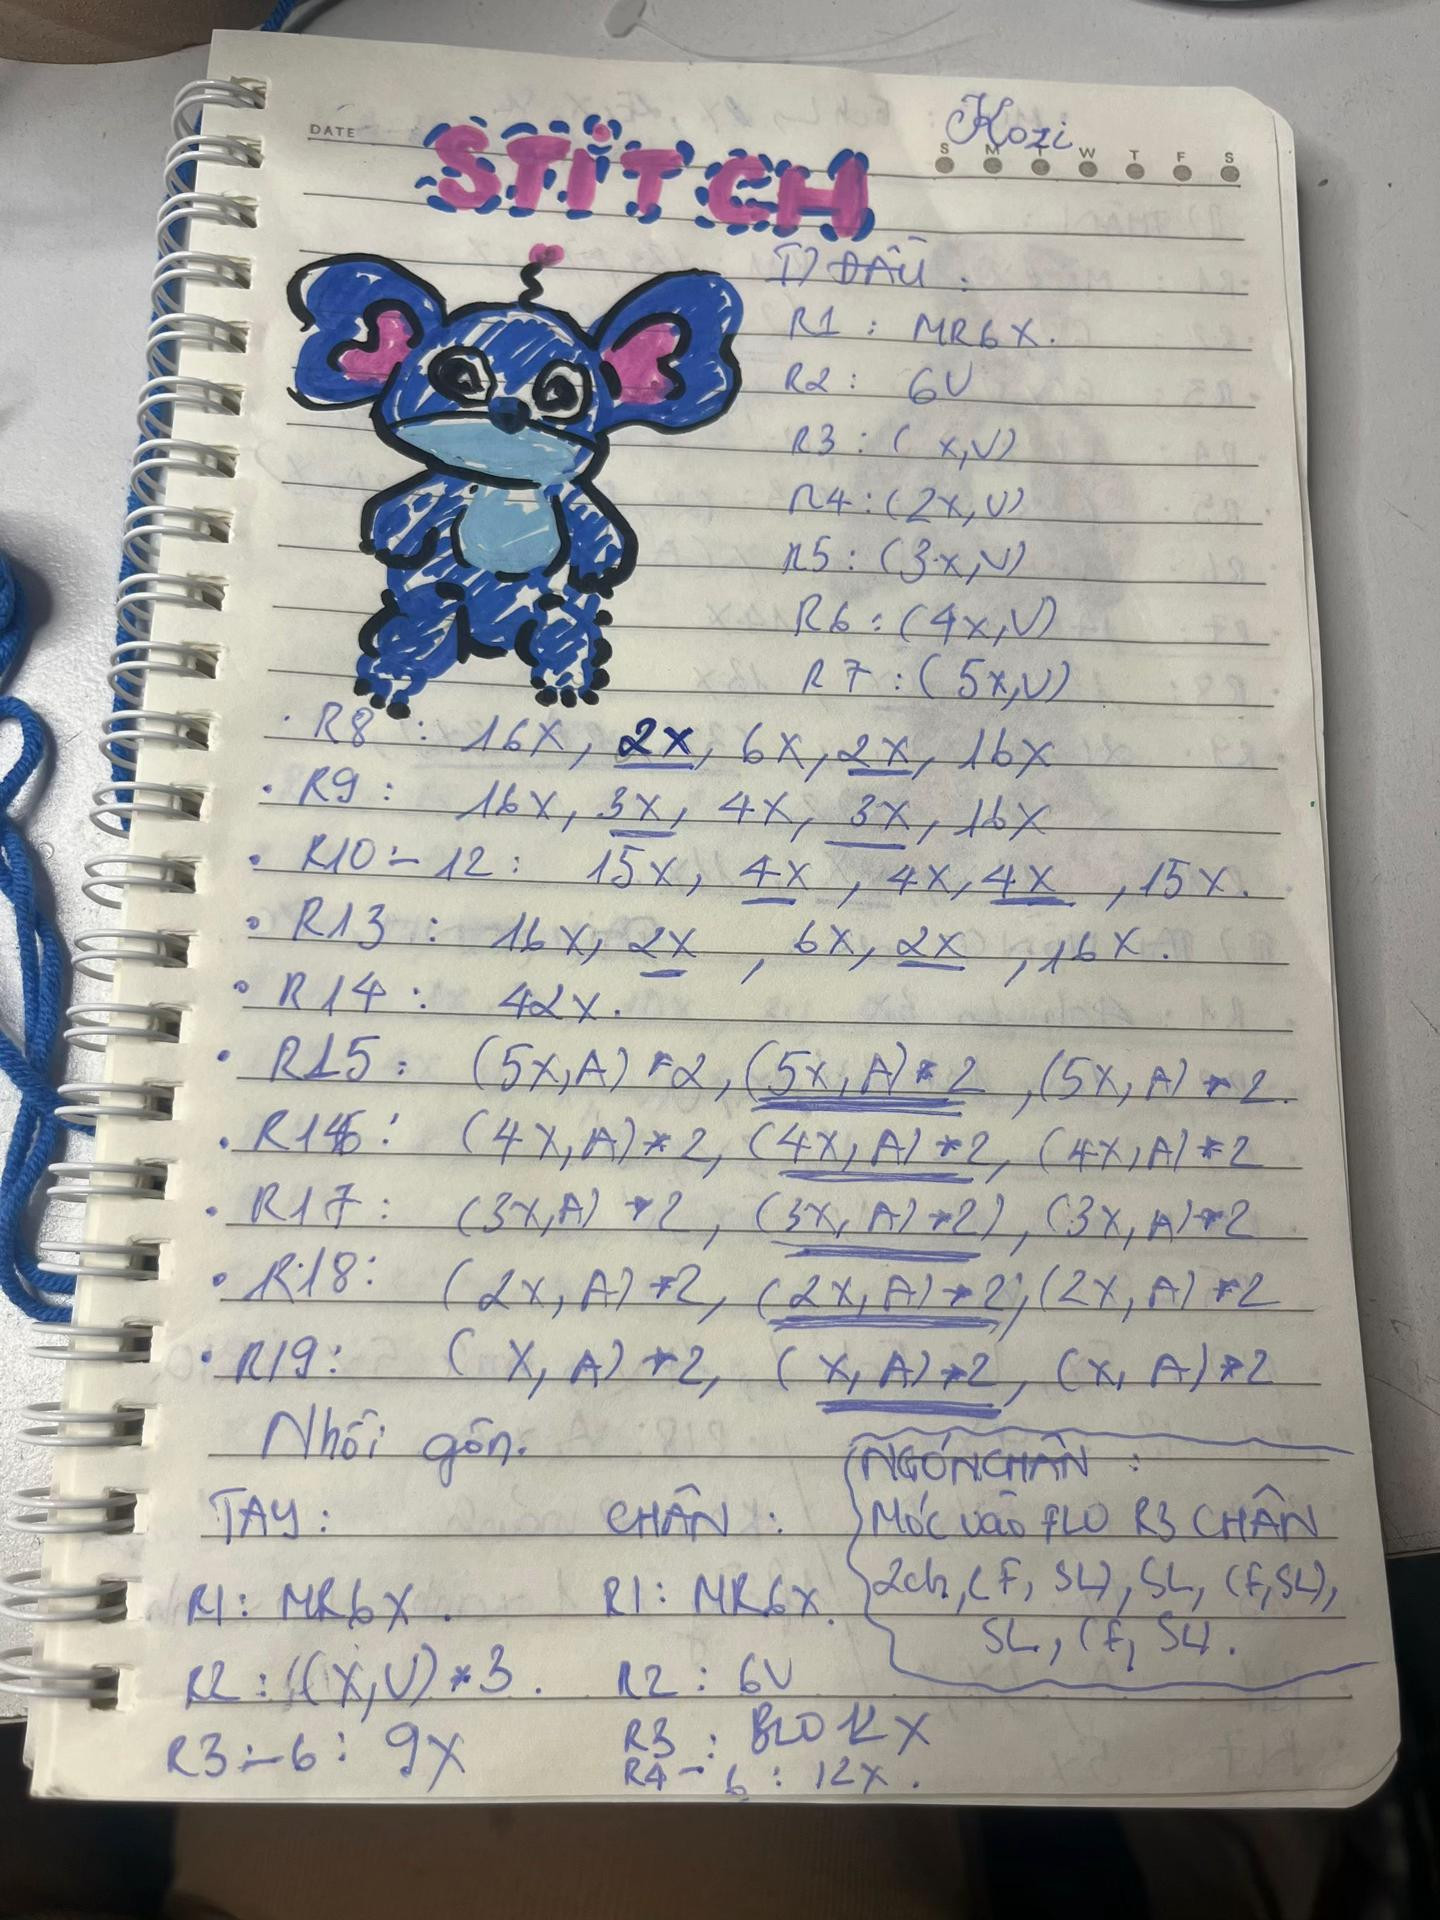 Kozi
DATE
S M T W T F S
STITCH
I) ĐẦU :
R1 : MR6X.
R2 : 6V
R3 : ( x,V)
R4 : (2x,V)
R5 : (3x,V)
R6 : (4x,V)
R7 : (5x,V)
· R8 : 16X, 2X, 6X, 2X, 16X
· R9 : 16X, 3X, 4X, 3X, 16X
· R10 :- 12 : 15X, 4X, 4X, 4X, 15X.
· R13 : 16X, 2X, 6X, 2X, 16X.
· R14 : 42X.
· R15 : (5X,A) *2, (5X,A) * 2, (5X, A) * 2.
· R16 : (4X,A) * 2, (4X,A) * 2, (4X,A) * 2
· R17 : (3X,A) * 2, (3X,A) * 2), (3X,A) * 2
· R18 : (2X,A) * 2, (2X,A) * 2, (2X,A) * 2
· R19 : (X,A) * 2, (X,A) * 2, (X,A) * 2
Nhồi gòn.
TAY :
R1 : MR6X.
R2 : ((X,V) * 3.
R3 :- 6 : 9X
CHÂN :
R1 : MR6X.
R2 : 6V
R3 : BLO 12X
R4 - 6 : 12X.
NGÓN CHÂN :
Móc vào FLO R3 CHÂN
2ch, (F, SL), SL, (F,SL),
SL, (F, SL).